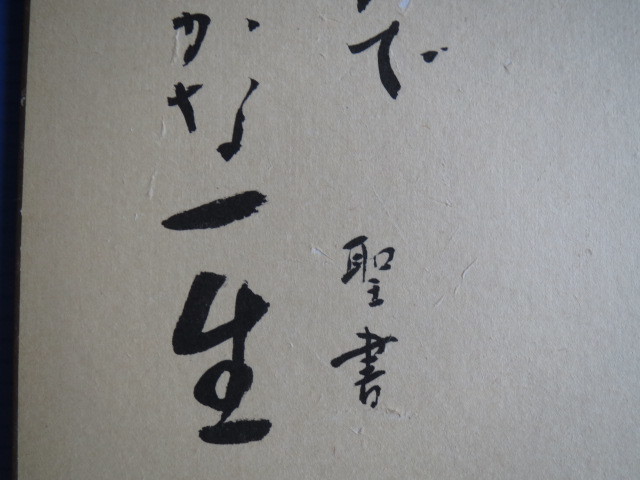 で
聖書
かな一生